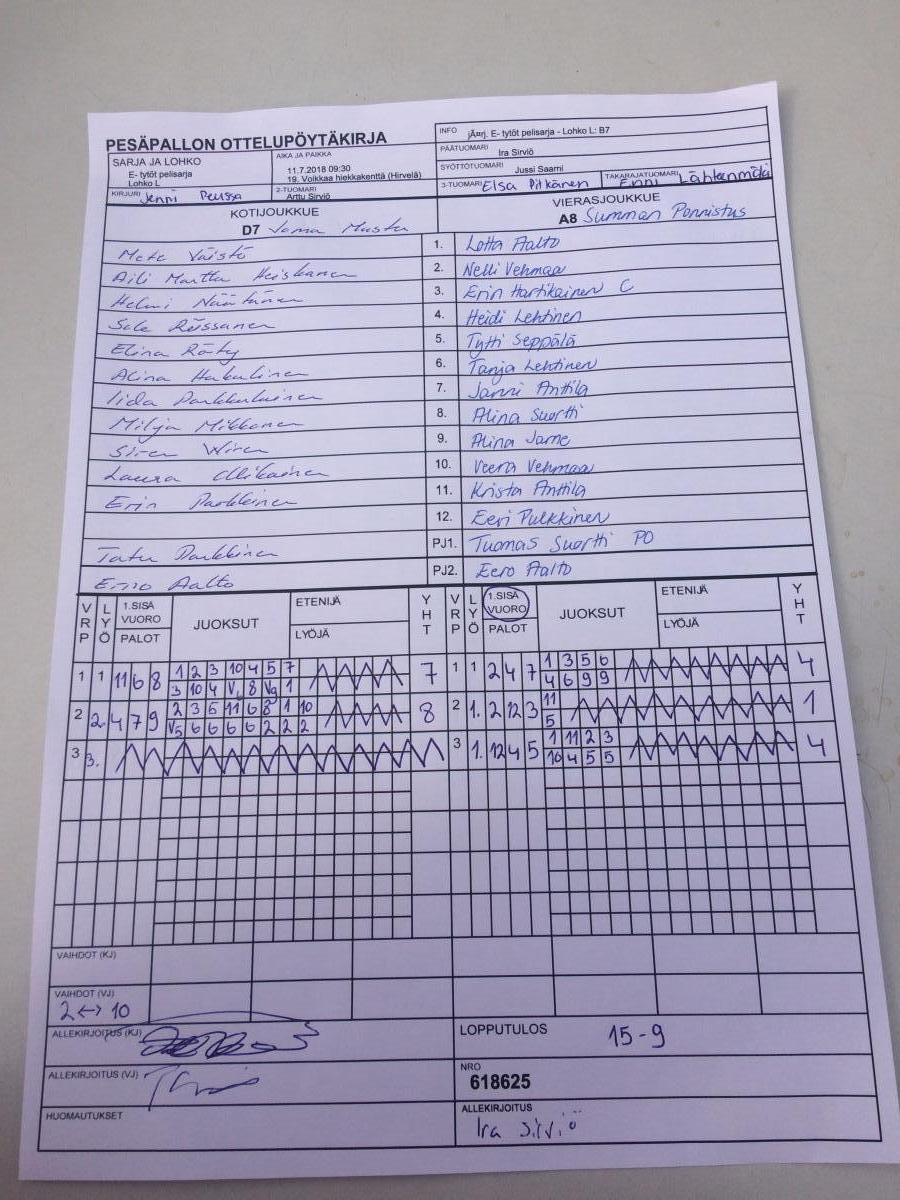 PESÄPALLON OTTELUPÖYTÄKIRJA
INFO jÃ¤rj. E- tytöt pelisarja - Lohko L: B7
SARJA JA LOHKO
E- tytöt pelisarja
Lohko L
AIKA JA PAIKKA
11.7.2018 09:30
19. Voikkaa hiekkakenttä (Hirvelä)
PÄÄTUOMARI Ira Sirviö
SYÖTTÖTUOMARI Jussi Saarni
KIRJURI Jenni Reussa
2-TUOMARI Arttu Sirviö
3-TUOMARI Elsa Pitkänen
TAKARAJATUOMARI Enni Lähteenmäki
KOTIJOUKKUE
D7
VIERASJOUKKUE
A8 Summan Ponnistus
Väistö 1. Lotta Aalto
Aili Martta Heiskanen 2. Nelli Vehmaa
Helmi Näätänen 3. Erin Hartikainen C
Rüssanen 4. Heidi Lehtinen
Elina Räty 5. Tytti Seppälä
Alina Hakulinen 6. Tanja Lehtinen
Iida Parkkulainen 7. Janni Anttila
Milja Mikkonen 8. Alina Suortti
Siren Wiren 9. Alina Jame
Laura Ollikainen 10. Veera Vehmaa
Erin Parkkinen 11. Krista Anttila
12. Eevi Pulkkinen
Tatu Parkkinen PJ1. Tuomas Suortti PO
Eero Aalto PJ2. Eero Aalto
VRP LYÖ 1.SISÄ VUORO PALOT JUOKSUT ETENIJÄ LYÖJÄ YHT VRP LYÖ 1.SISÄ VUORO PALOT JUOKSUT ETENIJÄ LYÖJÄ YHT
1 1 11 6 8 1 2 3 10 4 5 7 7 1 1 2 4 7 1 3 5 6 4
3 10 4 V 8 V9 1 4 6 9 9
2 2. 4 7 9 2 3 5 11 6 8 1 10 8 2 1. 2 12 3 11 1
V5 6 6 6 6 2 2 2 5
3 3. 3 1. 12 4 5 1 11 2 3 4
10 4 5 5
VAIHDOT (KJ)
VAIHDOT (VJ)
2 ↔ 10
ALLEKIRJOITUS (KJ)
LOPPUTULOS 15-9
ALLEKIRJOITUS (VJ)
NRO
618625
HUOMAUTUKSET
ALLEKIRJOITUS
Ira Sirviö